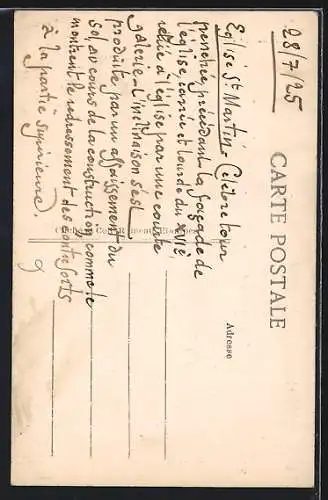 28/7/25
CARTE POSTALE
Adresse
Eglise St Martin - Célèbre tour
penchée précédant la façade de
l'église, carrée et lourde du XVIè
reliée à l'église par une courte
galerie. L'inclinaison s'est
produite par un affaissement du
sol au cours de la construction comme le
montrent le redressement des contreforts
à la partie supérieure.